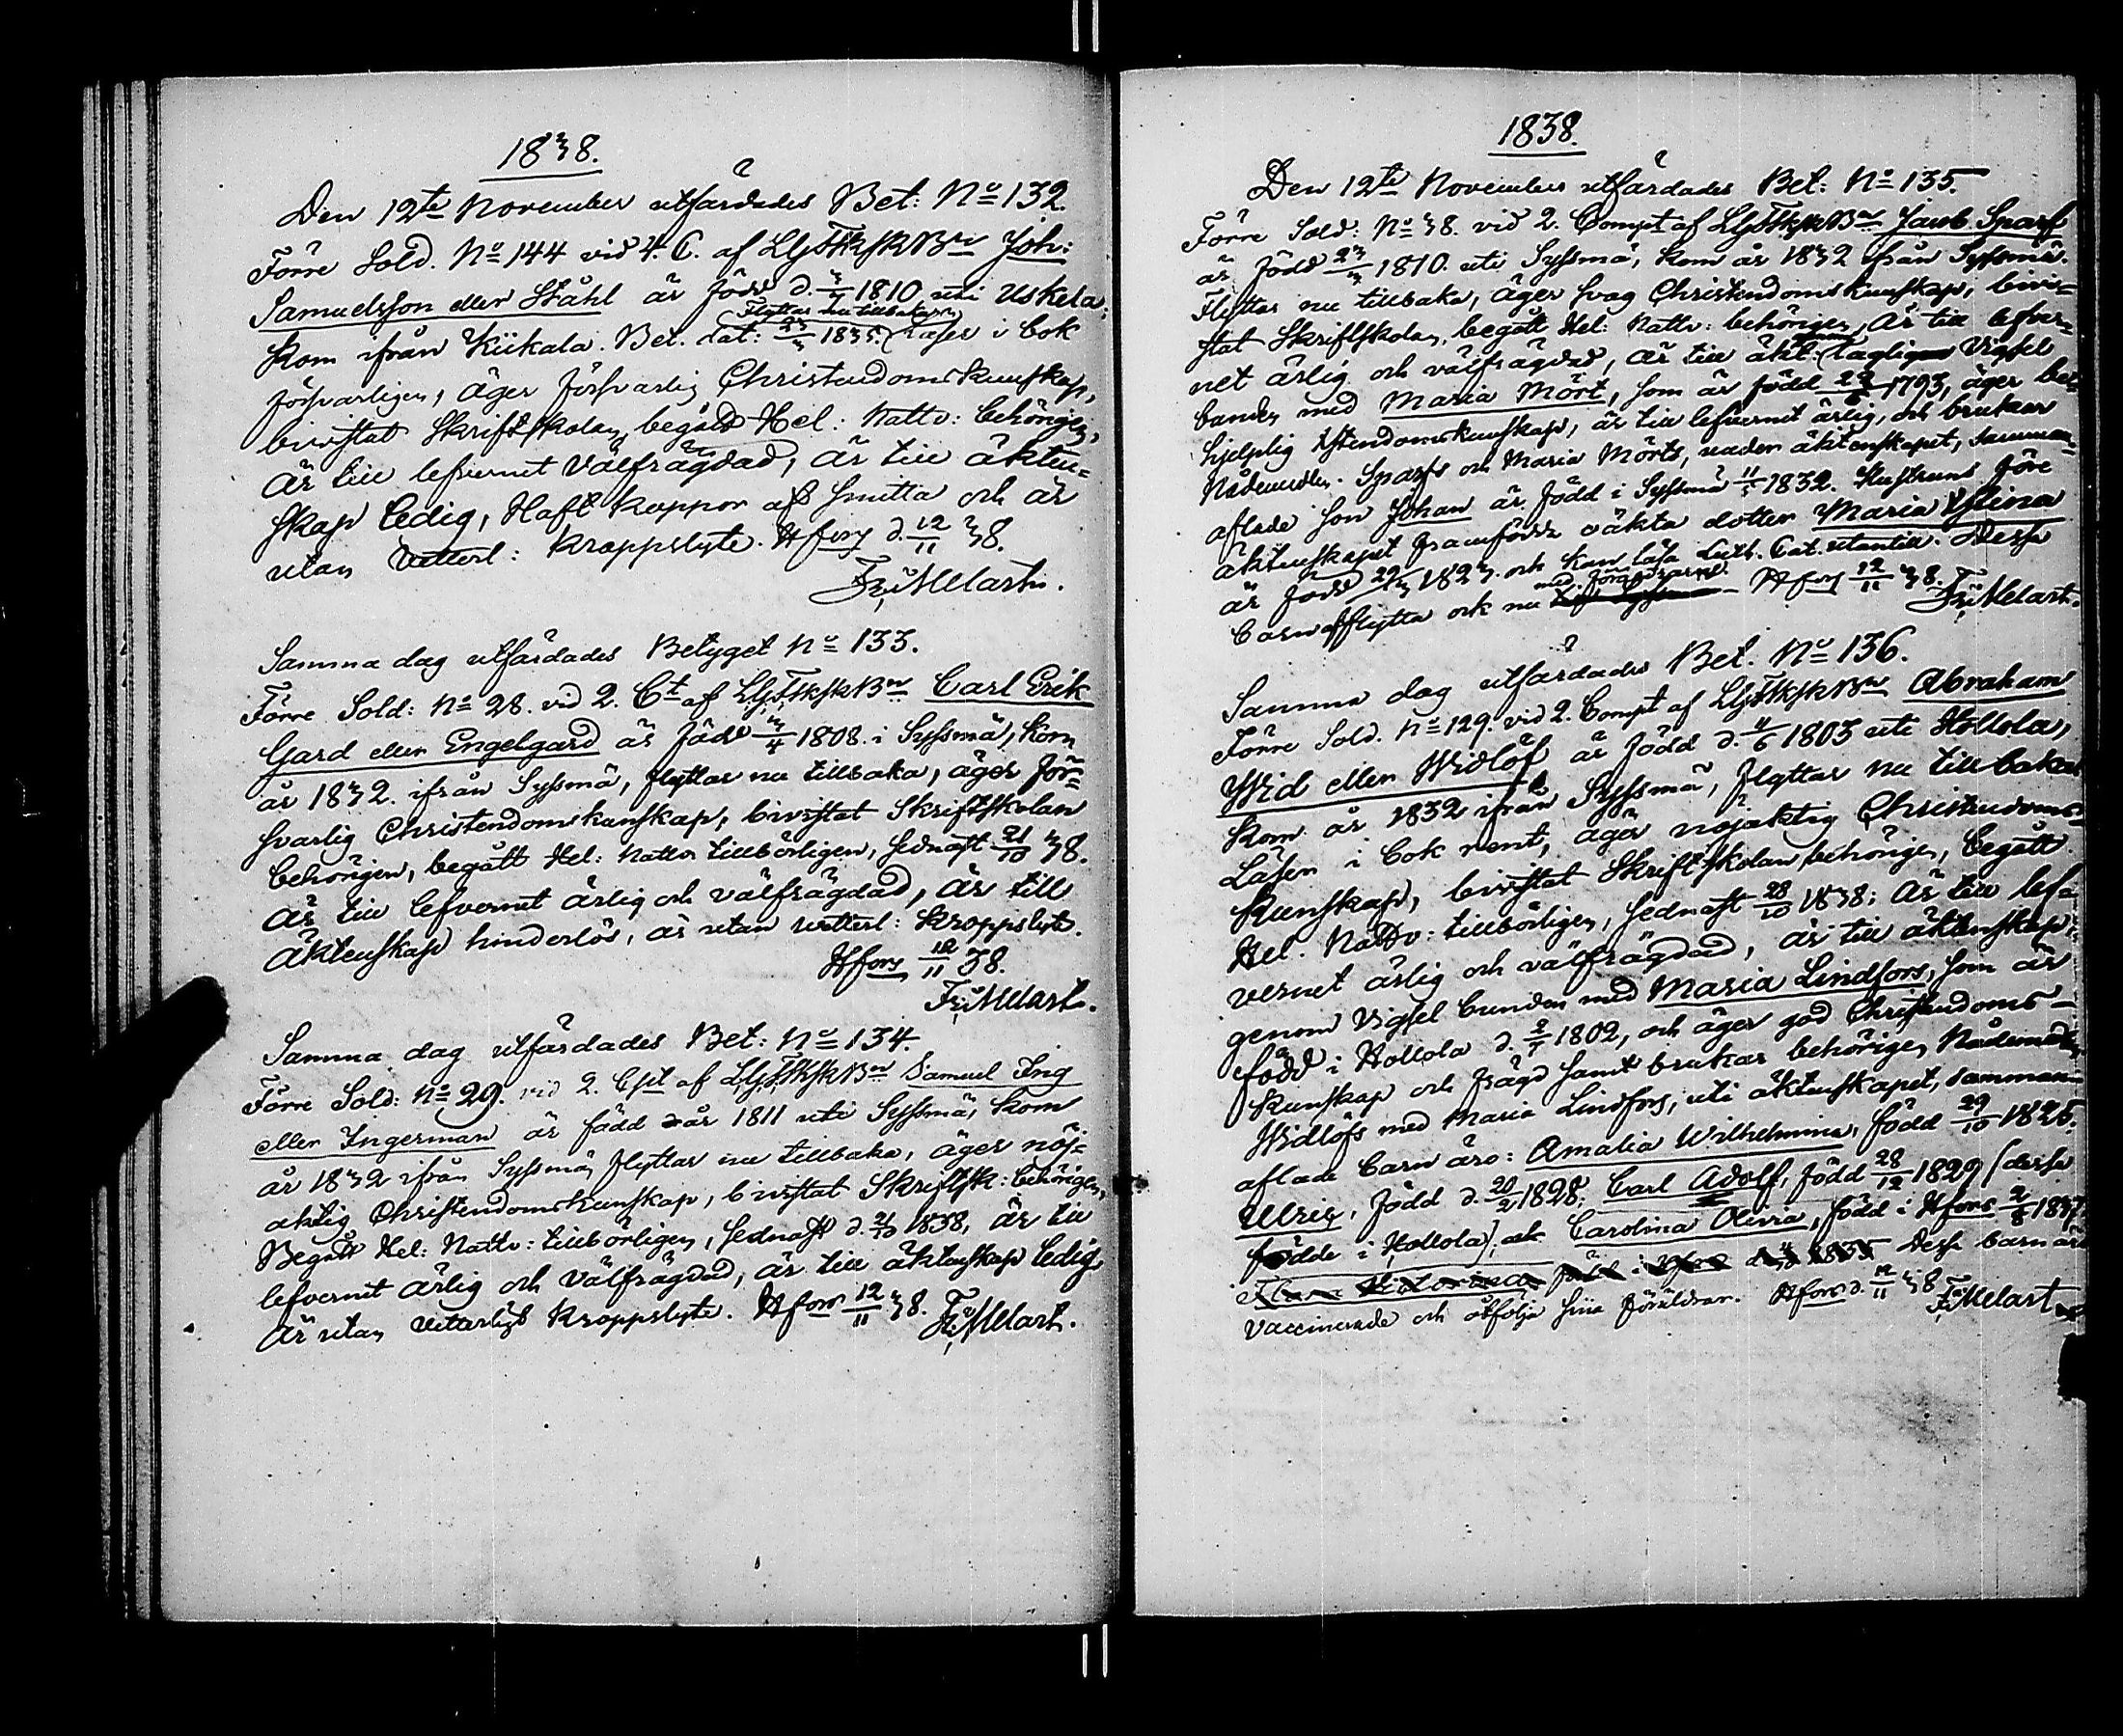 1838.
Den 12te November utfärdades Bet: No 132.
Förre Sold. No 144 vid 4. C. af LGFSkSkBn Joh:
Samuelsson eller Ståhl är född d. 3/7 1810 uti Uskela,
Flyttar nu tillbaka
Kom ifrån Kiikala. Bet. dat: 23/3 1835. Läser i bok
försvarligen, äger försvarlig Christendomskunskap,
bivistat Skriftskolan, begått Hel: Nattv: behörigen,
är till lefvernet välfrägdad, är till äkten-
skap ledig, Haft koppor af smitta och är
utan vetterl: kroppslyte. Hfors d. 12/11 38.
Fr: Melart.
Samma dag utfärdades Betyget No 133.
Förre Sold: No 28. vid 2. Ct af LGFSkSkBn Carl Erik
Gard eller Engelgard är född 3/4 1808. i Syssmä, kom
år 1832. ifrån Syssmä, flyttar nu tillbaka, äger för-
svarlig Christendomskunskap, bivistat Skriftskolan
behörigen, begått Hel: Nattv. tillbörligen, sednast 21/10 38.
är till lefvernet ärlig och välfrägdad, är till
äktenskap hinderlös, är utan vetterl: kroppslyte.
Hfors 12/11 38.
Fr: Melart.
Samma dag utfärdades Bet: No 134.
Förre Sold: No 29. vid 2. Cpt af LGFSkSkBn Samuel Ing
eller Ingerman är född år 1811 uti Syssmä, kom
år 1832 ifrån Syssmä, flyttar nu tillbaka, äger nöj-
aktig Christendomskunskap, bivistat Skriftsk: behörigen,
Begått Hel: Nattv: tillbörligen, sednast d. 21/10 1838, är till
lefvernet ärlig och välfrägdad, är till äktenskap ledig
är utan vetterligt kroppslyte. Hfors 12/11 38. Fr: Melart.
1838.
Den 12te November utfärdades Bet: No 135.
Förre Sold: No 38. vid 2. Compt af LGFSkSkBn Jacob Sparf
är född 23/3 1810. uti Syssmä, kom år 1832 ifrån Syssmä.
Flyttar nu tillbaka, äger svag Christendomskunskap, bivi-
stat Skriftskolan, begått Hel: Nattv: behörigen, är till lefver-
net ärlig och välfrägdad, är till äkt: genom lagligen vigsel
bunden med Maria Mört, som är född 1793, äger be-
hjelplig Xstendomskunskap, är till lefvernet ärlig, och brukar
Nådemedlen. Sparfs och Maria Mörts, under äktenskapet, samman-
aflade son Johan är född i Syssmä 11/5 1832. Hustruns före
äktenskapet framfödda oäkta dotter Maria Stina
är född 29/3 1823. och kan läsa Luth. Cat. utantill. Desse
med föräldrarne
barn afflytta ock nu Hfors 12/11 38. Fr: Melart.
Samma dag utfärdades Bet. No 136.
Förre Sold. No 129. vid 2. Compt af LGFSkSkBn Abraham
Wid eller Widlöf är född d. 11/6 1803 uti Hollola,
kom år 1832 ifrån Syssmä, flyttar nu tillbaka
Läser i bok rent, äger nöjaktig Christendoms-
kunskap, bivistat Skriftskolan behörigen, begått
Hel. Nattv: tillbörligen, sednast 28/10 1838; är till lef-
vernet ärlig och välfrägdad, är till äktenskap
genom vigsel bunden med Maria Lindfors, som är
född i Hollola d. 2/7 1802, och äger god Christendoms-
kunskap och frägd samt brukar behörigen Nådemedlen
Widlöfs med Maria Lindfors, uti äktenskapet, samman-
aflade barn äro: Amalia Wilhelmina, född 29/10 1825.
Ulric, född d. 20/2 1828; Carl Adolf, född 28/12 1829 (desse
födde i Hollola), Carolina Olivia, född i Hfors 2/8 1837
Desse barn är
vaccinerade och åtfölja sina föräldrar. Hfors d. 12/11 38
Fr: Melart